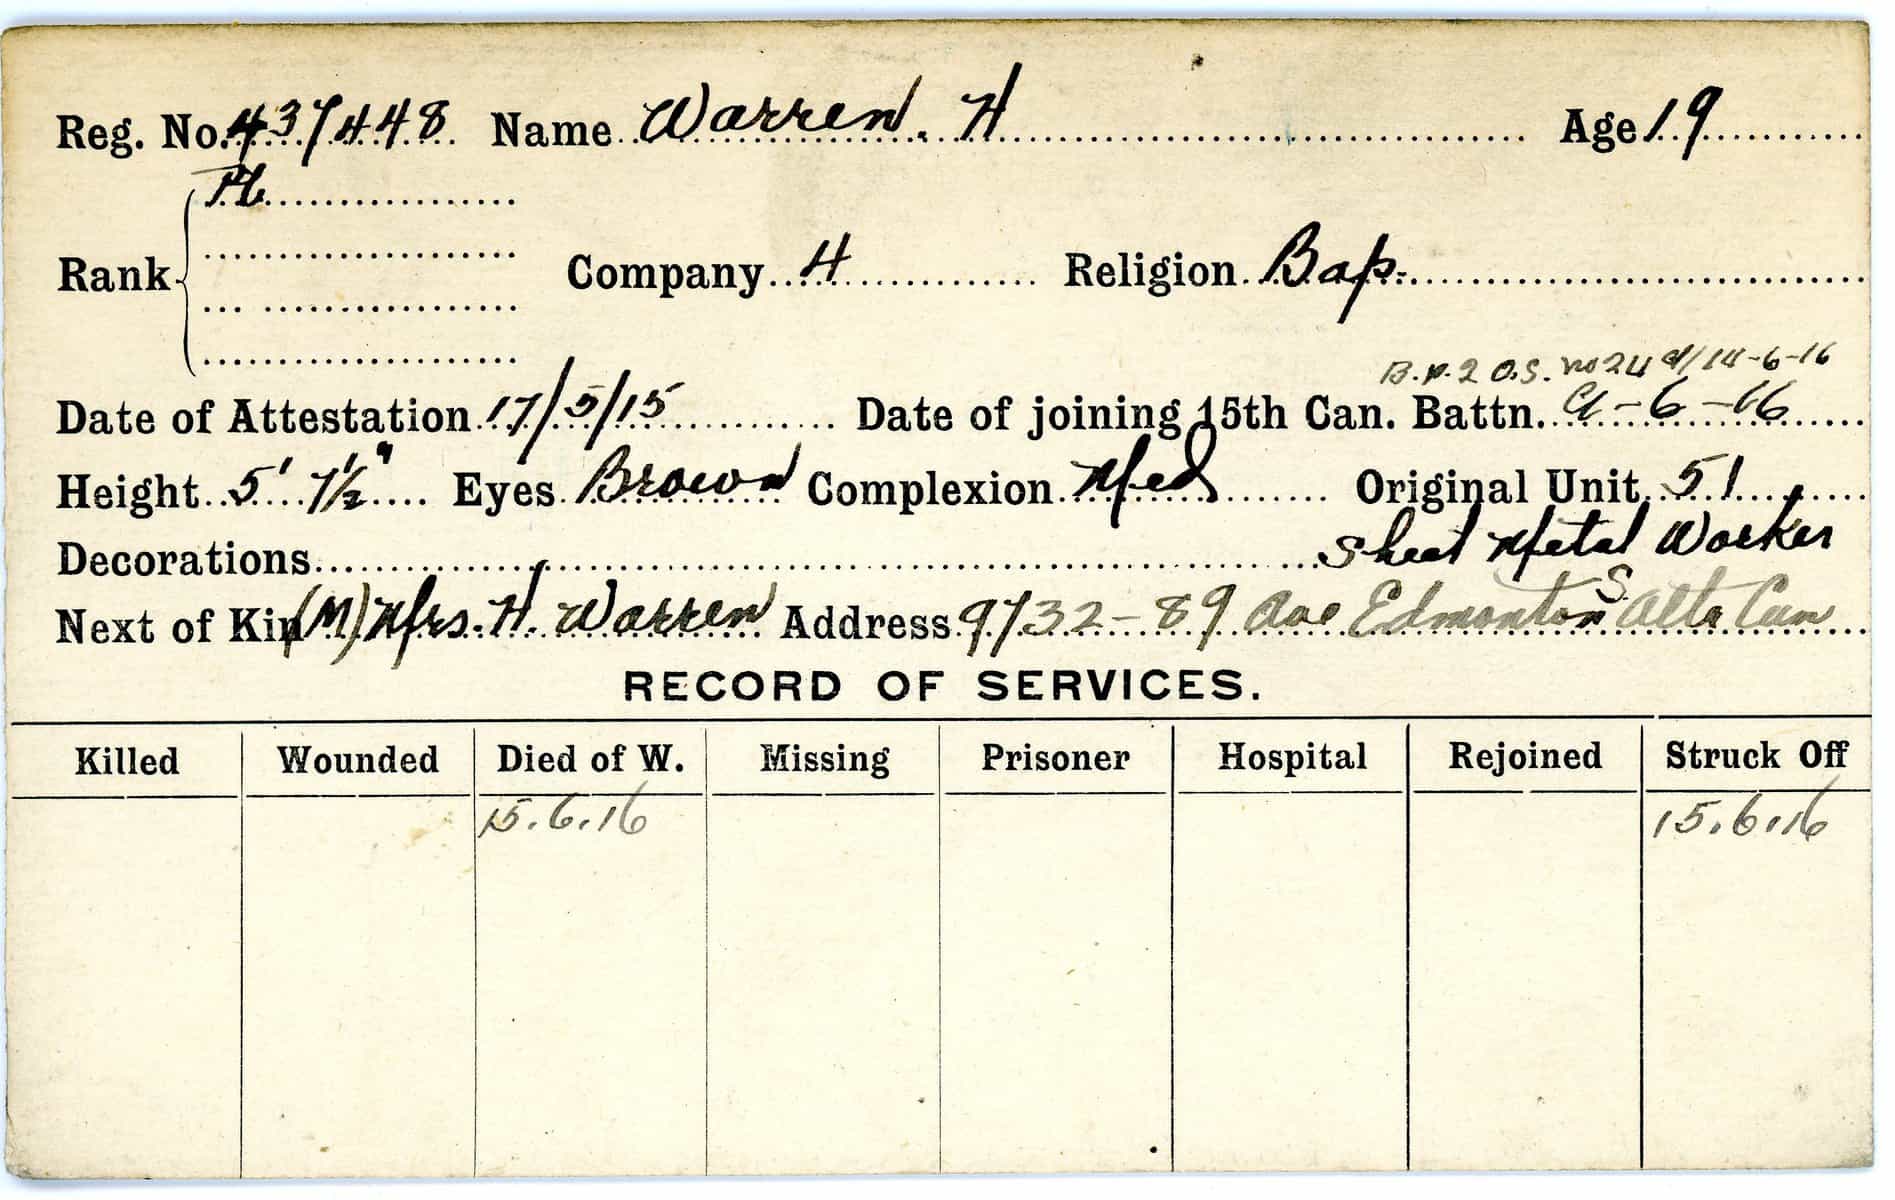 Reg. No. 437448 Name Warren. H Age 19
Pte
Rank Company 4 Religion Bap.
B.P.2 O.S. no 24 d/14-6-16
Date of Attestation 17/5/15 Date of joining 15th Can. Battn. -6-16
Height 5' 7½" Eyes Brown Complexion Med Original Unit 51
Decorations Sheet Metal Worker
Next of Kin (M) Mrs. H. Warren Address 9732-89 Ave Edmonton S. Alta Can
RECORD OF SERVICES.
Killed Wounded Died of W. Missing Prisoner Hospital Rejoined Struck Off
15.6.16 15.6.16